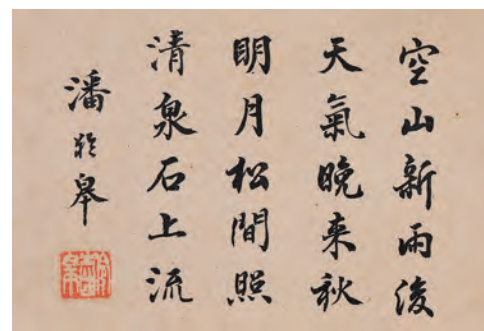 空山新雨後
天氣晚来秋
明月松間照
清泉石上流
潘齡皋